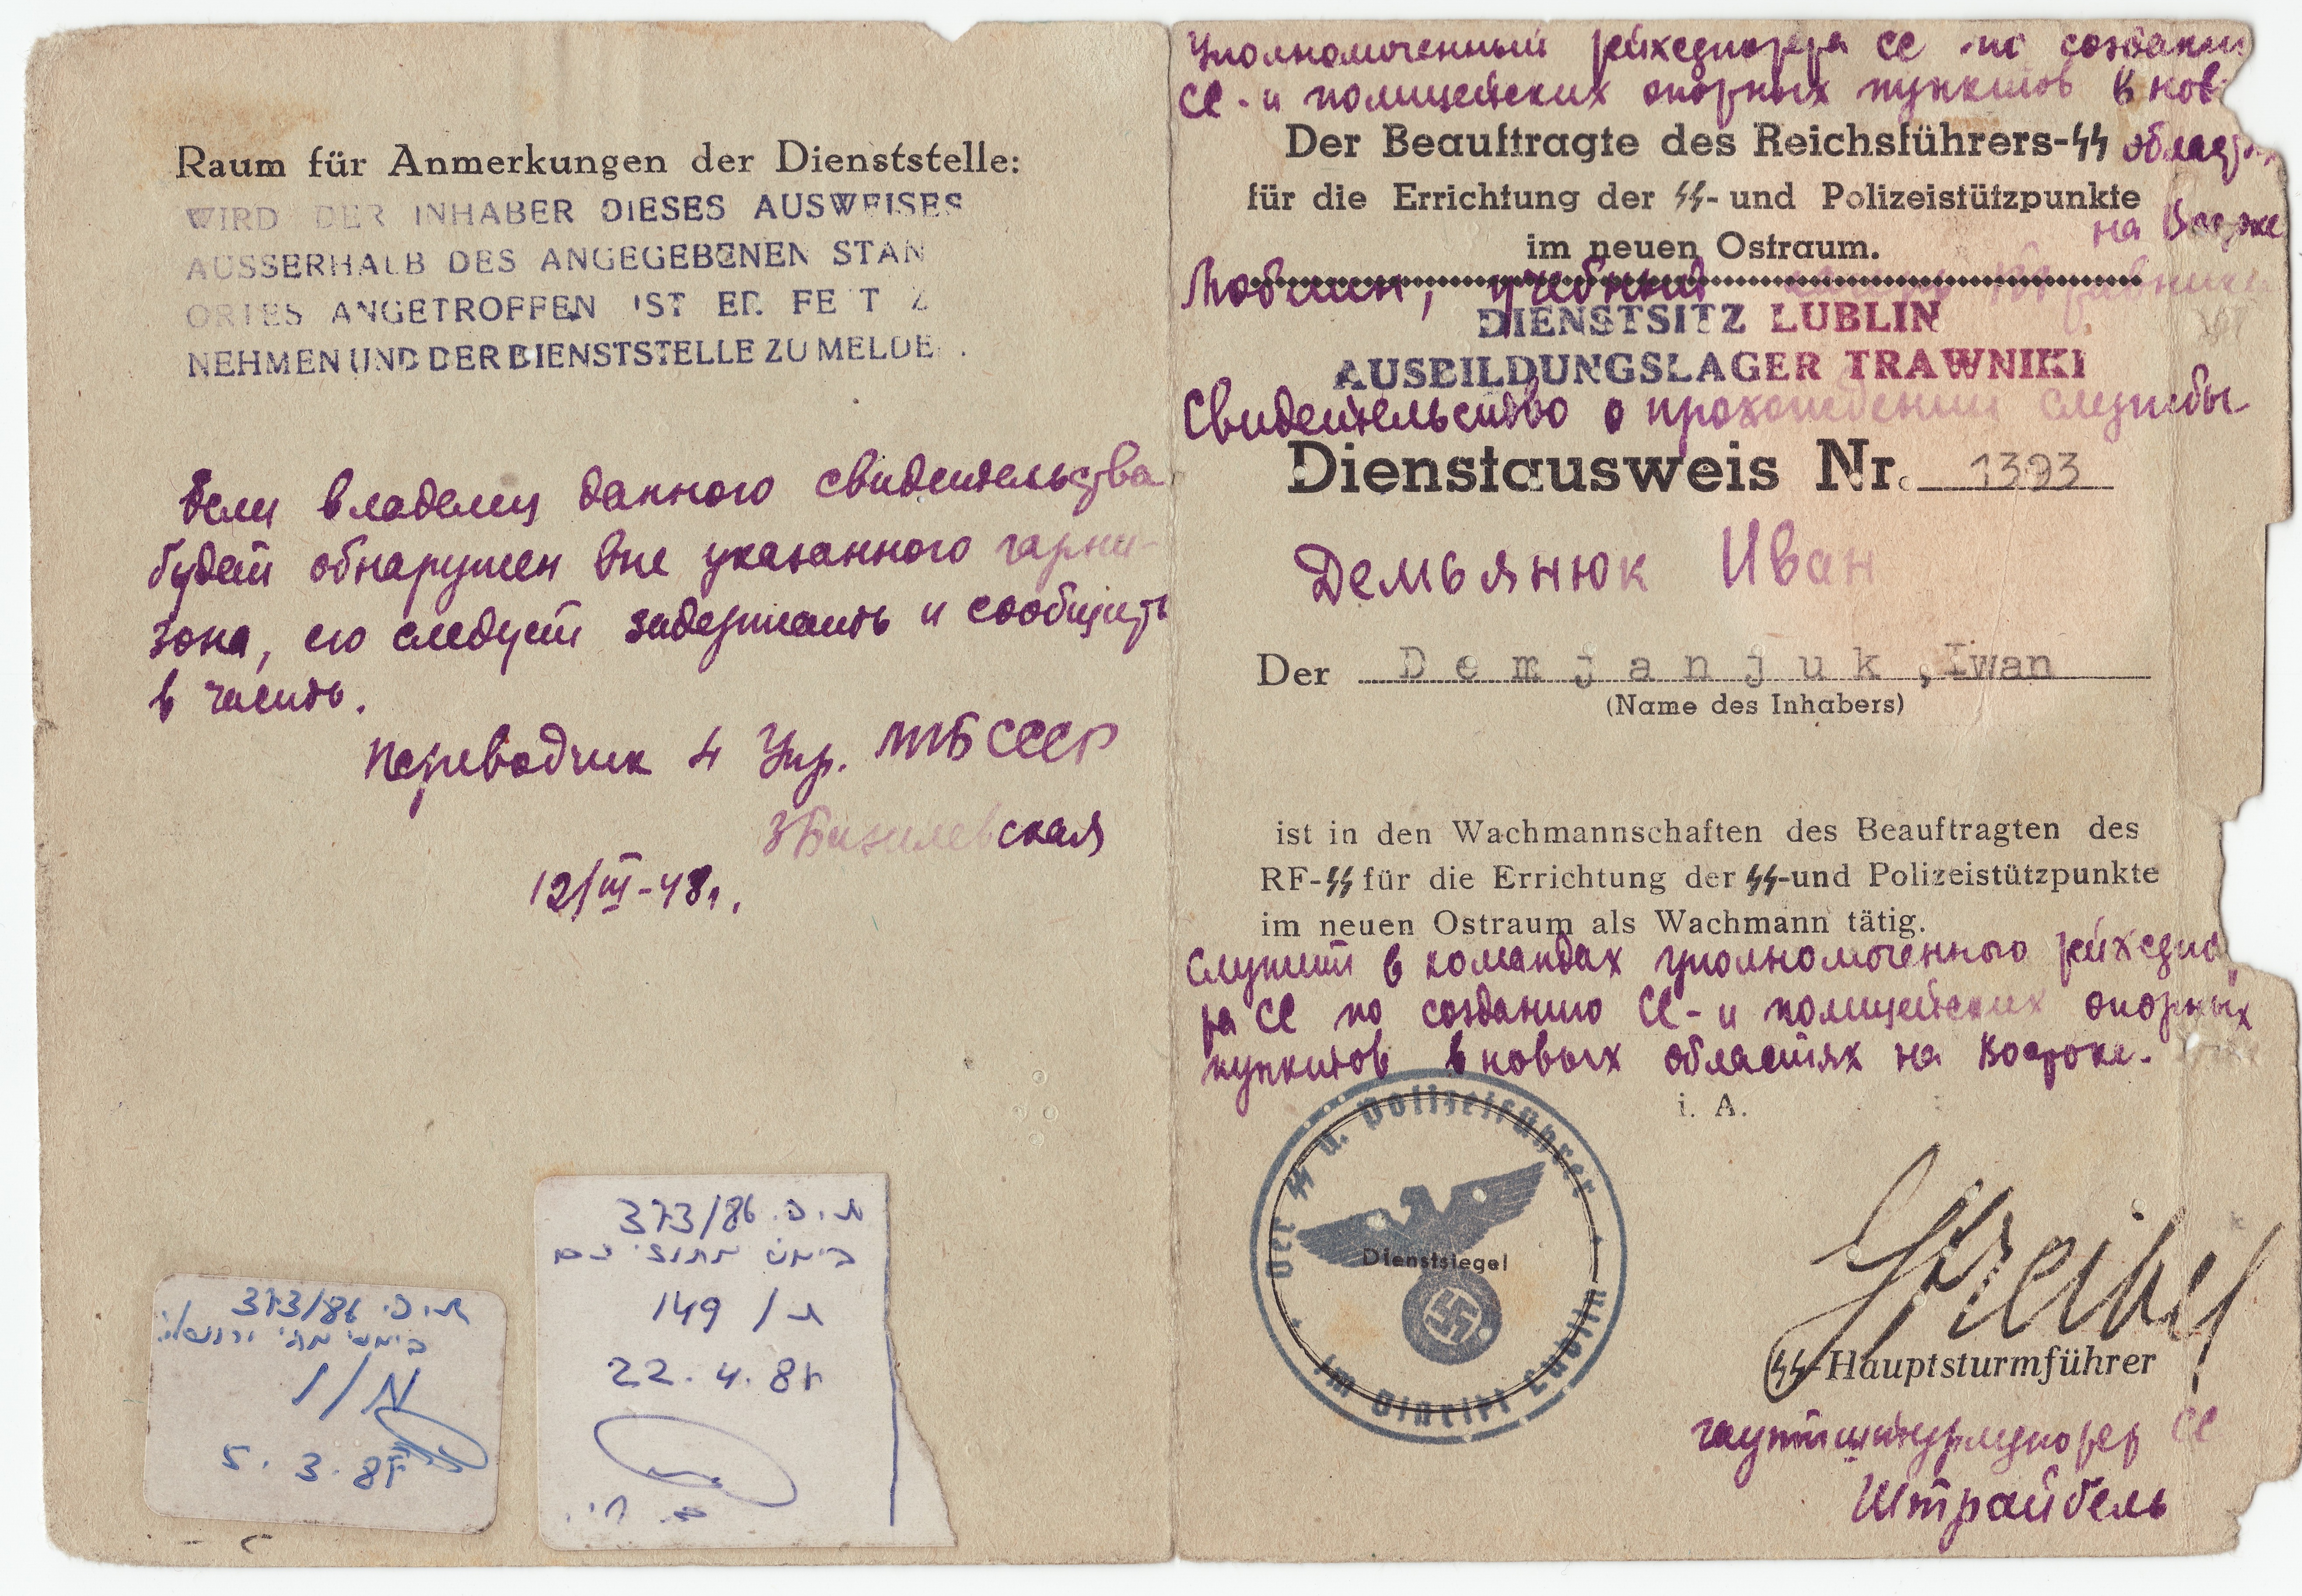 Raum für Anmerkungen der Dienststelle:
WIRD DER INHABER DIESES AUSWEISES
AUSSERHALB DES ANGEGEBENEN STAN
ORTES ANGETROFFEN IST ER FE T Z
NEHMEN UND DER DIENSTSTELLE ZU MELDE .
Если владелец данного свидетельства
будет обнаружен вне указанного гарни-
зона, его следует задержать и сообщить
в часть.
Переводчик 4 Упр. МГБ СССР
12/III-48г.
ת.פ. 373/86
149 / ת
22.4.87
ת.פ. 373/86
1/א
5.3.87
Уполномоченный рейхсфюрера СС по создани
СС-и полицейских опорных пунктов в нов
Der Beauftragte des Reichsführers-SS област
für die Errichtung der SS- und Polizeistützpunkte
на Востоке
im neuen Ostraum.
Люблин, учебный
DIENSTSITZ LUBLIN
AUSBILDUNGSLAGER TRAWNIKI
Свидетельство о прохождении службы
Dienstausweis Nr. 1393
Демьянюк Иван
Der Demjanjuk, Iwan
(Name des Inhabers)
ist in den Wachmannschaften des Beauftragten des
RF-SS für die Errichtung der SS-und Polizeistützpunkte
im neuen Ostraum als Wachmann tätig.
Служит в командах уполномоченного рейхсфю
ра СС по созданию СС-и полицейских опорных
пунктов в новых областях на Востоке.
i. A.
Der SS u. Polizeiführer
im Distrikt Lublin
Dienstsiegel
Streibel
SS-Hauptsturmführer
гауптштурмфюрер СС
Штрайбель